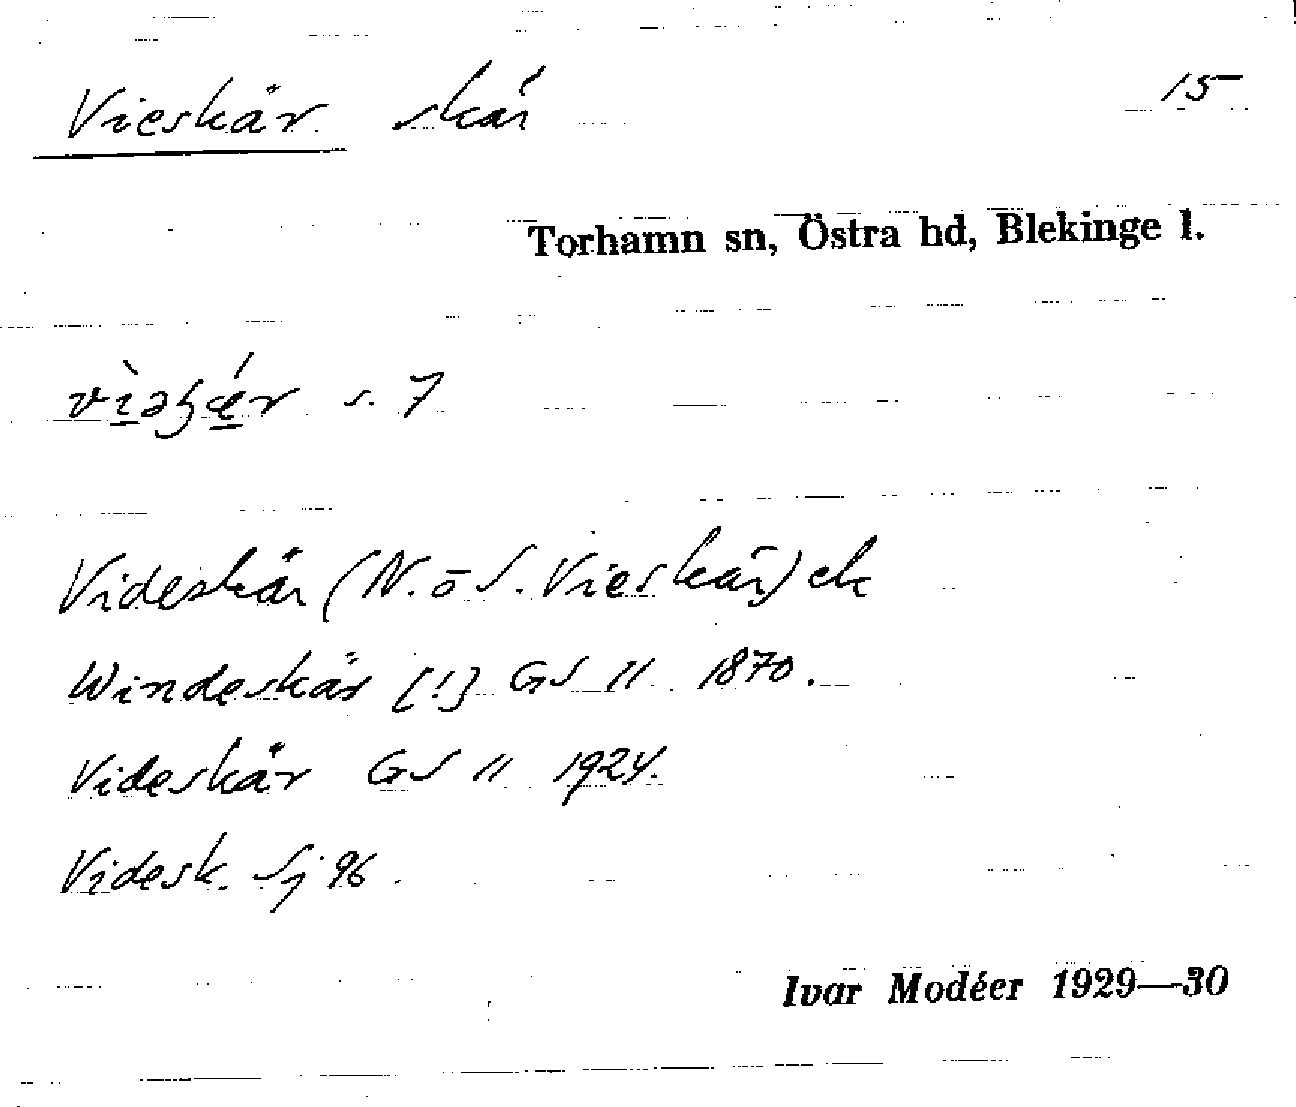 Vieskär skär 15
Torhamn sn, Östra hd, Blekinge l.
s. 7
Videskär (N. o S. Vieskär) ek
Windeskär [!] GS 11 1870.
Videskär GS 11 1924.
Videsk. Sj 96.
Ivar Modéer 1929—30